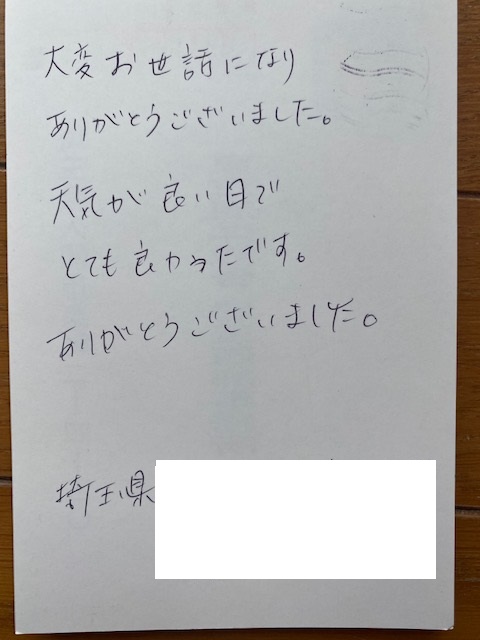 大変お世話になり
ありがとうございました。
天気が良い日で
とても良かったです。
ありがとうございました。
埼玉県